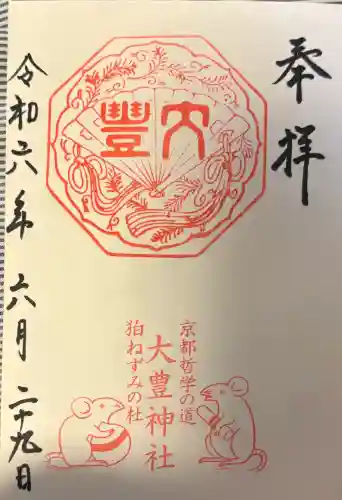 奉拝
大豐
京都哲学の道
大豊神社
狛ねずみの社
令和六年 六月二十九日